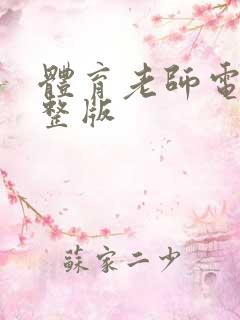 體育老師電
整版
蘇家二少